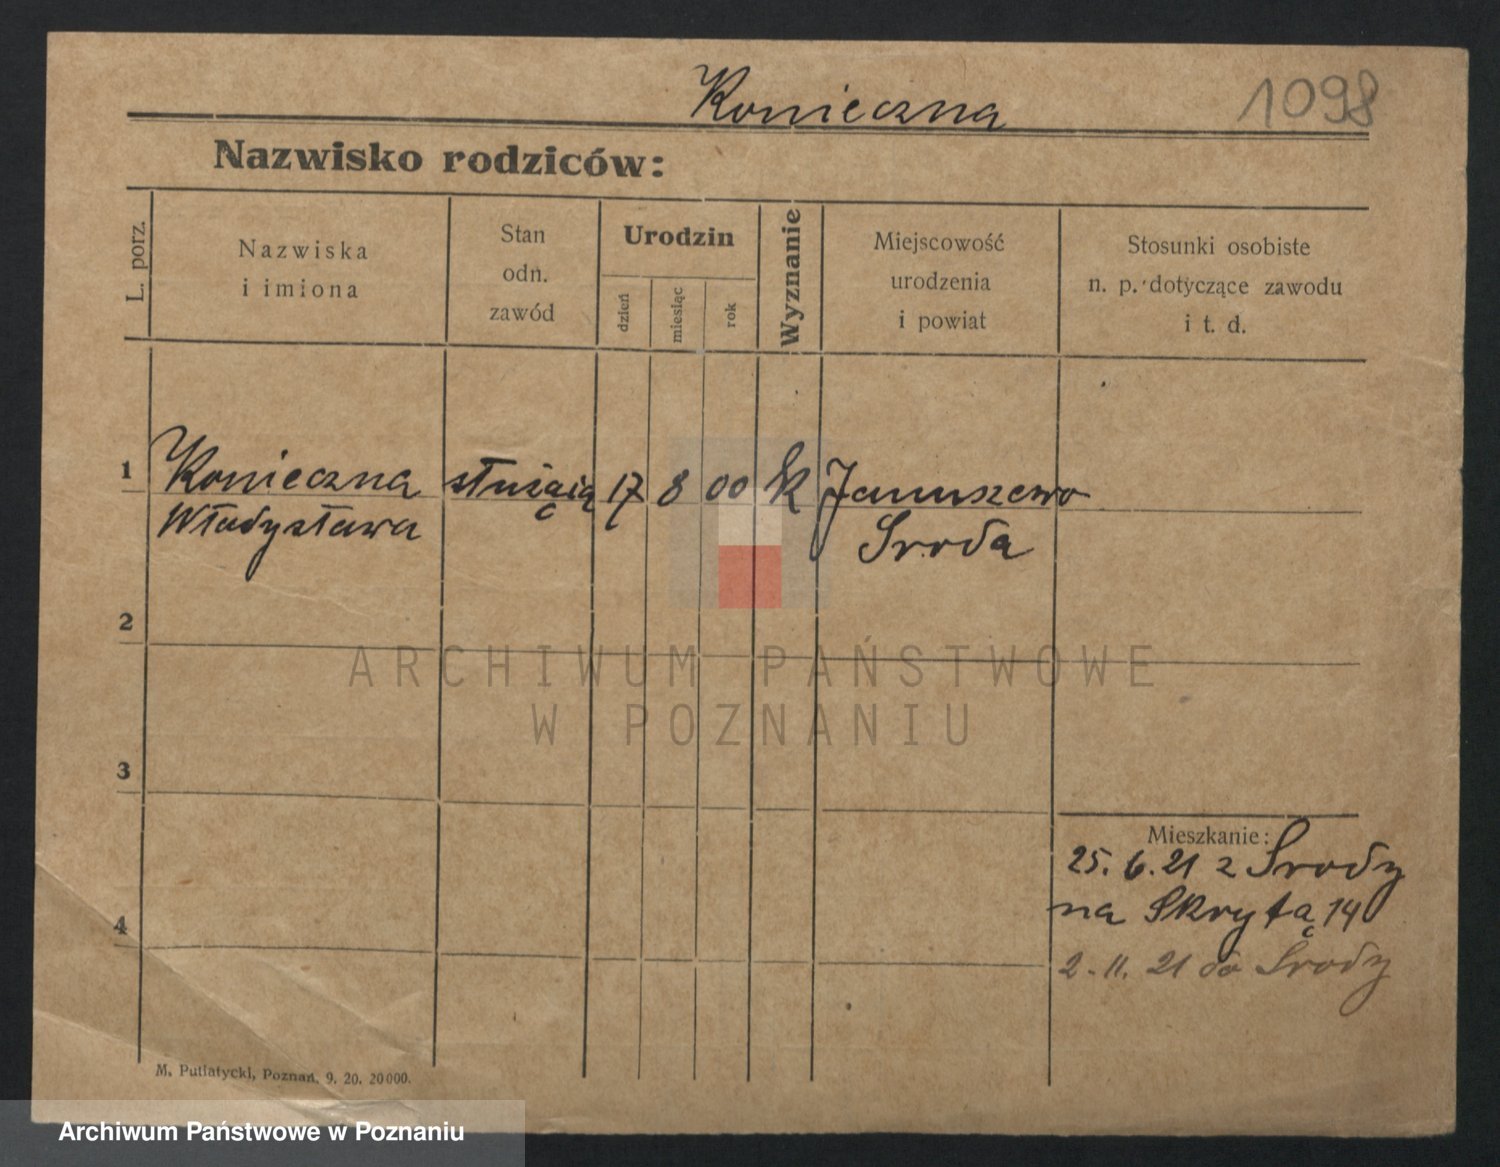 Konieczna
1098
Nazwisko rodziców:
L. porz.
Nazwiska
i imiona
Stan
odn.
zawód
Urodzin
dzień
miesiąc
rok
Wyznanie
Miejscowość
urodzenia
i powiat
Stosunki osobiste
n. p. dotyczące zawodu
i t. d.
1 Konieczna służąca 17 8 00 k Januszewo
Władysława Sroda
2
3
4
Mieszkanie:
25. 6. 21 z Srody
na Skrytą 14
2. 11. 21 do Srody
M. Putiatycki, Poznań, 9. 20. 20000.
ARCHIWUM PAŃSTWOWE
W POZNANIU
Archiwum Państwowe w Poznaniu